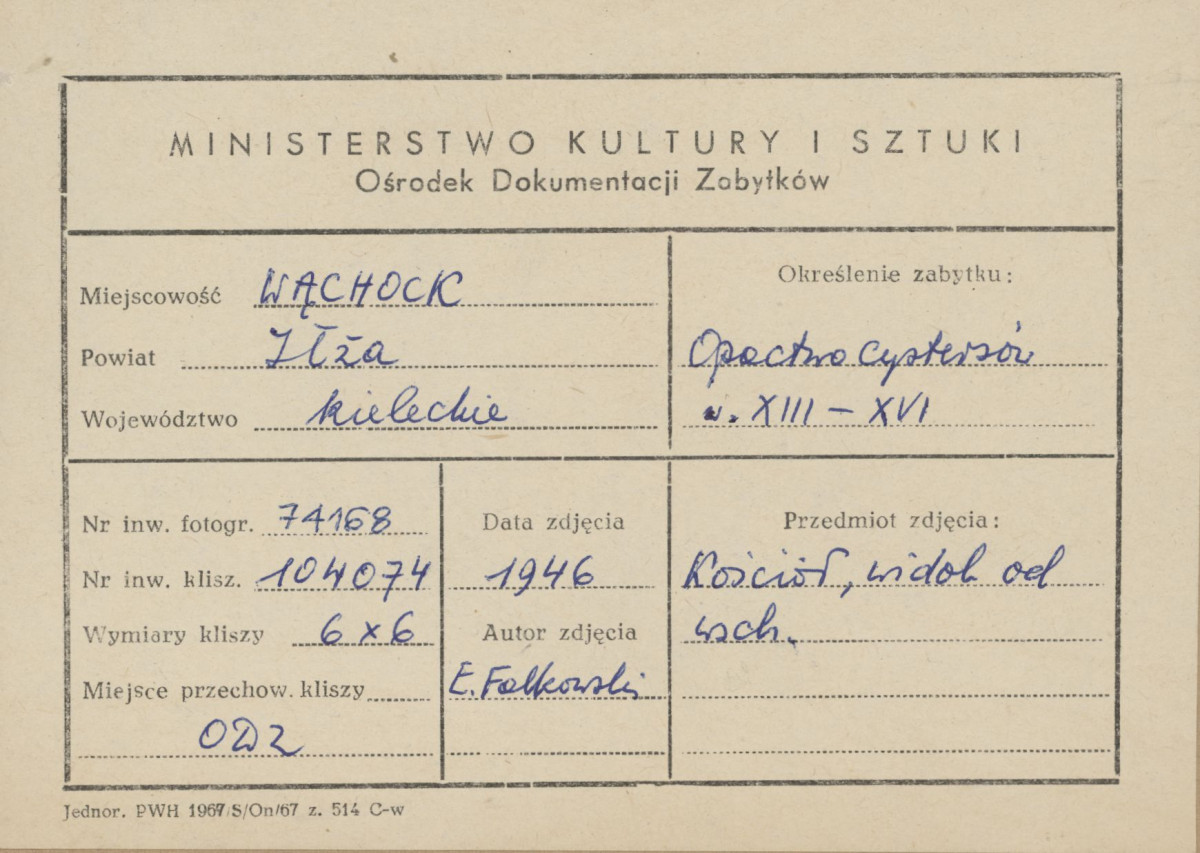 MINISTERSTWO KULTURY I SZTUKI
Ośrodek Dokumentacji Zabytków
Miejscowość WĄCHOCK
Powiat Iłża
Województwo kieleckie
Określenie zabytku:
Opactwo cystersów
w. XIII - XVI
Nr inw. fotogr. 74168
Nr inw. klisz. 104074
Wymiary kliszy 6 x 6
Miejsce przechow. kliszy
ODZ
Data zdjęcia
1946
Autor zdjęcia
E. Falkowski
Przedmiot zdjęcia:
Kościół, widok od
wsch.
Jednor. PWH 1967/S/On/67 z. 514 C-w